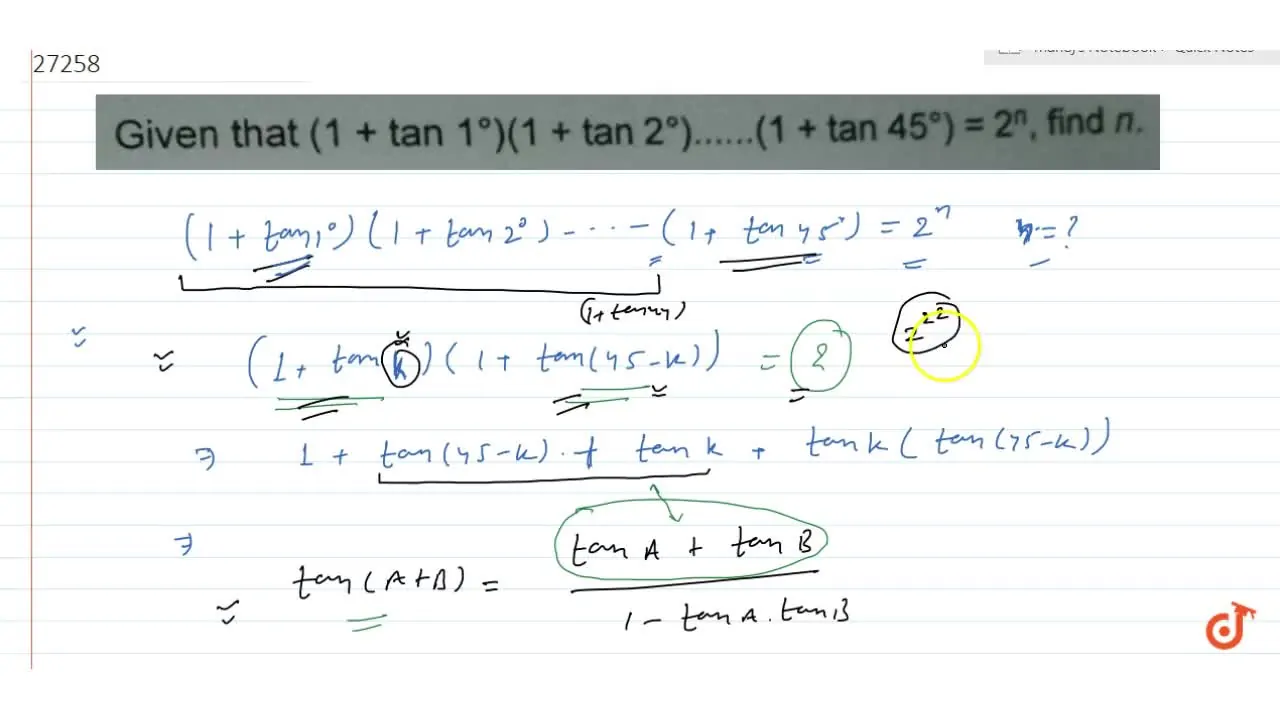 27258
Quick Notes
Given that (1 + tan 1°)(1 + tan 2°)......(1 + tan 45°) = 2ⁿ, find n.
(1 + tan 1°) (1 + tan 2°) - ... - (1 + tan 45°) = 2ⁿ n = ?
(1 + tan 44)
(1 + tan k) (1 + tan (45 - k)) = 2 2²²
⇒ 1 + tan (45 - k) . + tan k + tan k ( tan (45 - k))
⇒ tan A + tan B
tan (A + B) =
1 - tan A . tan B